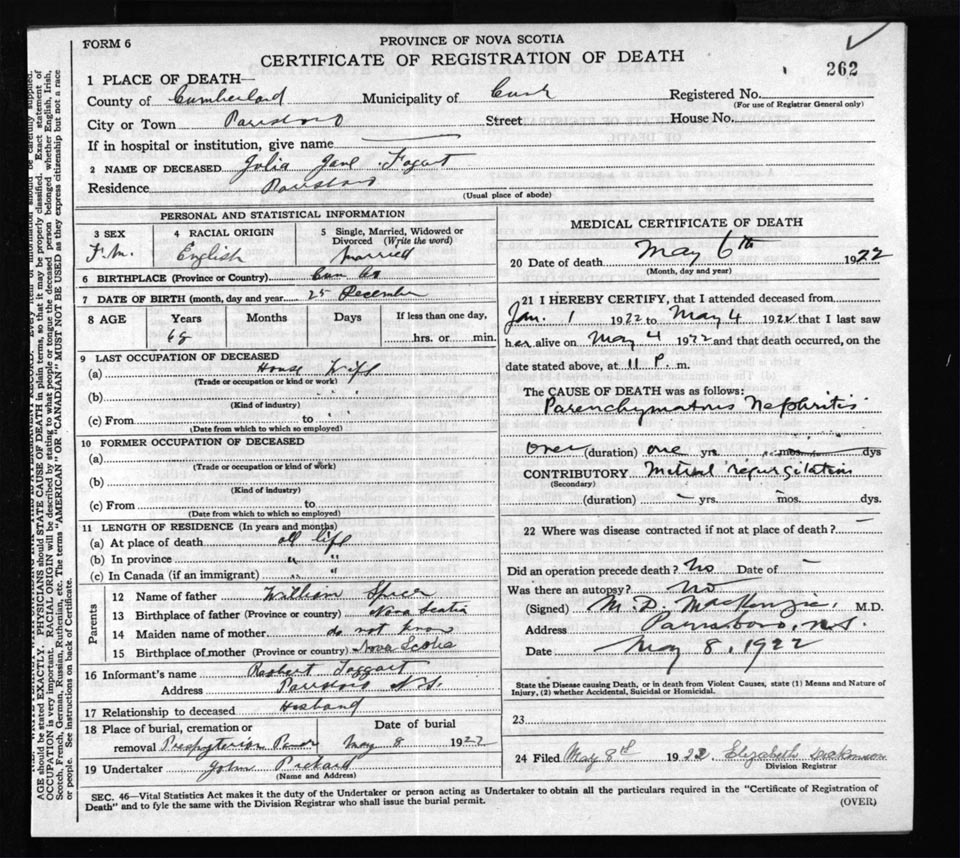 FORM 6
PROVINCE OF NOVA SCOTIA
CERTIFICATE OF REGISTRATION OF DEATH
262
1 PLACE OF DEATH—
County of Cumberland Municipality of Registered No.
(For use of Registrar General only)
City or Town Parrsboro Street House No.
If in hospital or institution, give name
2 NAME OF DECEASED Julia Jane
Residence Parrsboro
(Usual place of abode)
PERSONAL AND STATISTICAL INFORMATION
3 SEX 4 RACIAL ORIGIN 5 Single, Married, Widowed or Divorced (Write the word)
F.M. English Married
6 BIRTHPLACE (Province or Country)
7 DATE OF BIRTH (month, day and year) 25 December
8 AGE Years Months Days If less than one day,
hrs. or min.
9 LAST OCCUPATION OF DECEASED
(a) House Wife
(Trade or occupation or kind or work)
(b)
(Kind of industry)
(c) From to
(Date from which to which so employed)
10 FORMER OCCUPATION OF DECEASED
(a)
(Trade or occupation or kind of work)
(b)
(Kind of industry)
(c) From to
(Date from which to which so employed)
11 LENGTH OF RESIDENCE (In years and months)
(a) At place of death all life
(b) In province " "
(c) In Canada (if an immigrant) " "
Parents
12 Name of father William Spicer
13 Birthplace of father (Province or country) Nova Scotia
14 Maiden name of mother do not know
15 Birthplace of mother (Province or country) Nova Scotia
16 Informant's name Robert Taggart
Address Parrsboro N.S.
17 Relationship to deceased Husband
18 Place of burial, cremation or Date of burial
removal Presbyterian May 8 1922
19 Undertaker John
(Name and Address)
MEDICAL CERTIFICATE OF DEATH
20 Date of death May 6th 1922
(Month, day and year)
21 I HEREBY CERTIFY, that I attended deceased from
Jan. 1 1922 to May 4 1922 that I last saw
her alive on May 4 1922 and that death occurred, on the
date stated above, at 11 P. m.
The CAUSE OF DEATH was as follows:
Parenchymatous Nephritis
Over (duration) one yrs. mos. dys
CONTRIBUTORY Mitral regurgitation
(Secondary)
(duration) – yrs. mos. dys.
22 Where was disease contracted if not at place of death? –
Did an operation precede death? No Date of –
Was there an autopsy? No
(Signed) M. D. MacKenzie, M.D.
Address Parrsboro, N.S.
Date May 8, 1922
State the Disease causing Death, or in death from Violent Causes, state (1) Means and Nature of
Injury, (2) whether Accidental, Suicidal or Homicidal.
23
24 Filed May 8th 1922 Elizabeth
Division Registrar
SEC. 46—Vital Statistics Act makes it the duty of the Undertaker or person acting as Undertaker to obtain all the particulars required in the "Certificate of Registration of
Death" and to fyle the same with the Division Registrar who shall issue the burial permit.
(OVER)
AGE should be stated EXACTLY. PHYSICIANS should STATE CAUSE OF DEATH in plain terms, so that it may be properly classified. Exact statement of
OCCUPATION is very important. RACIAL ORIGIN will be described by stating to what people or tongue the deceased person belonged whether English, Irish,
Scotch, French, German, Russian, Ruthenian, etc. The terms "AMERICAN" OR "CANADIAN" MUST NOT BE USED as they express citizenship but not a race
or people. See instructions on back of Certificate.